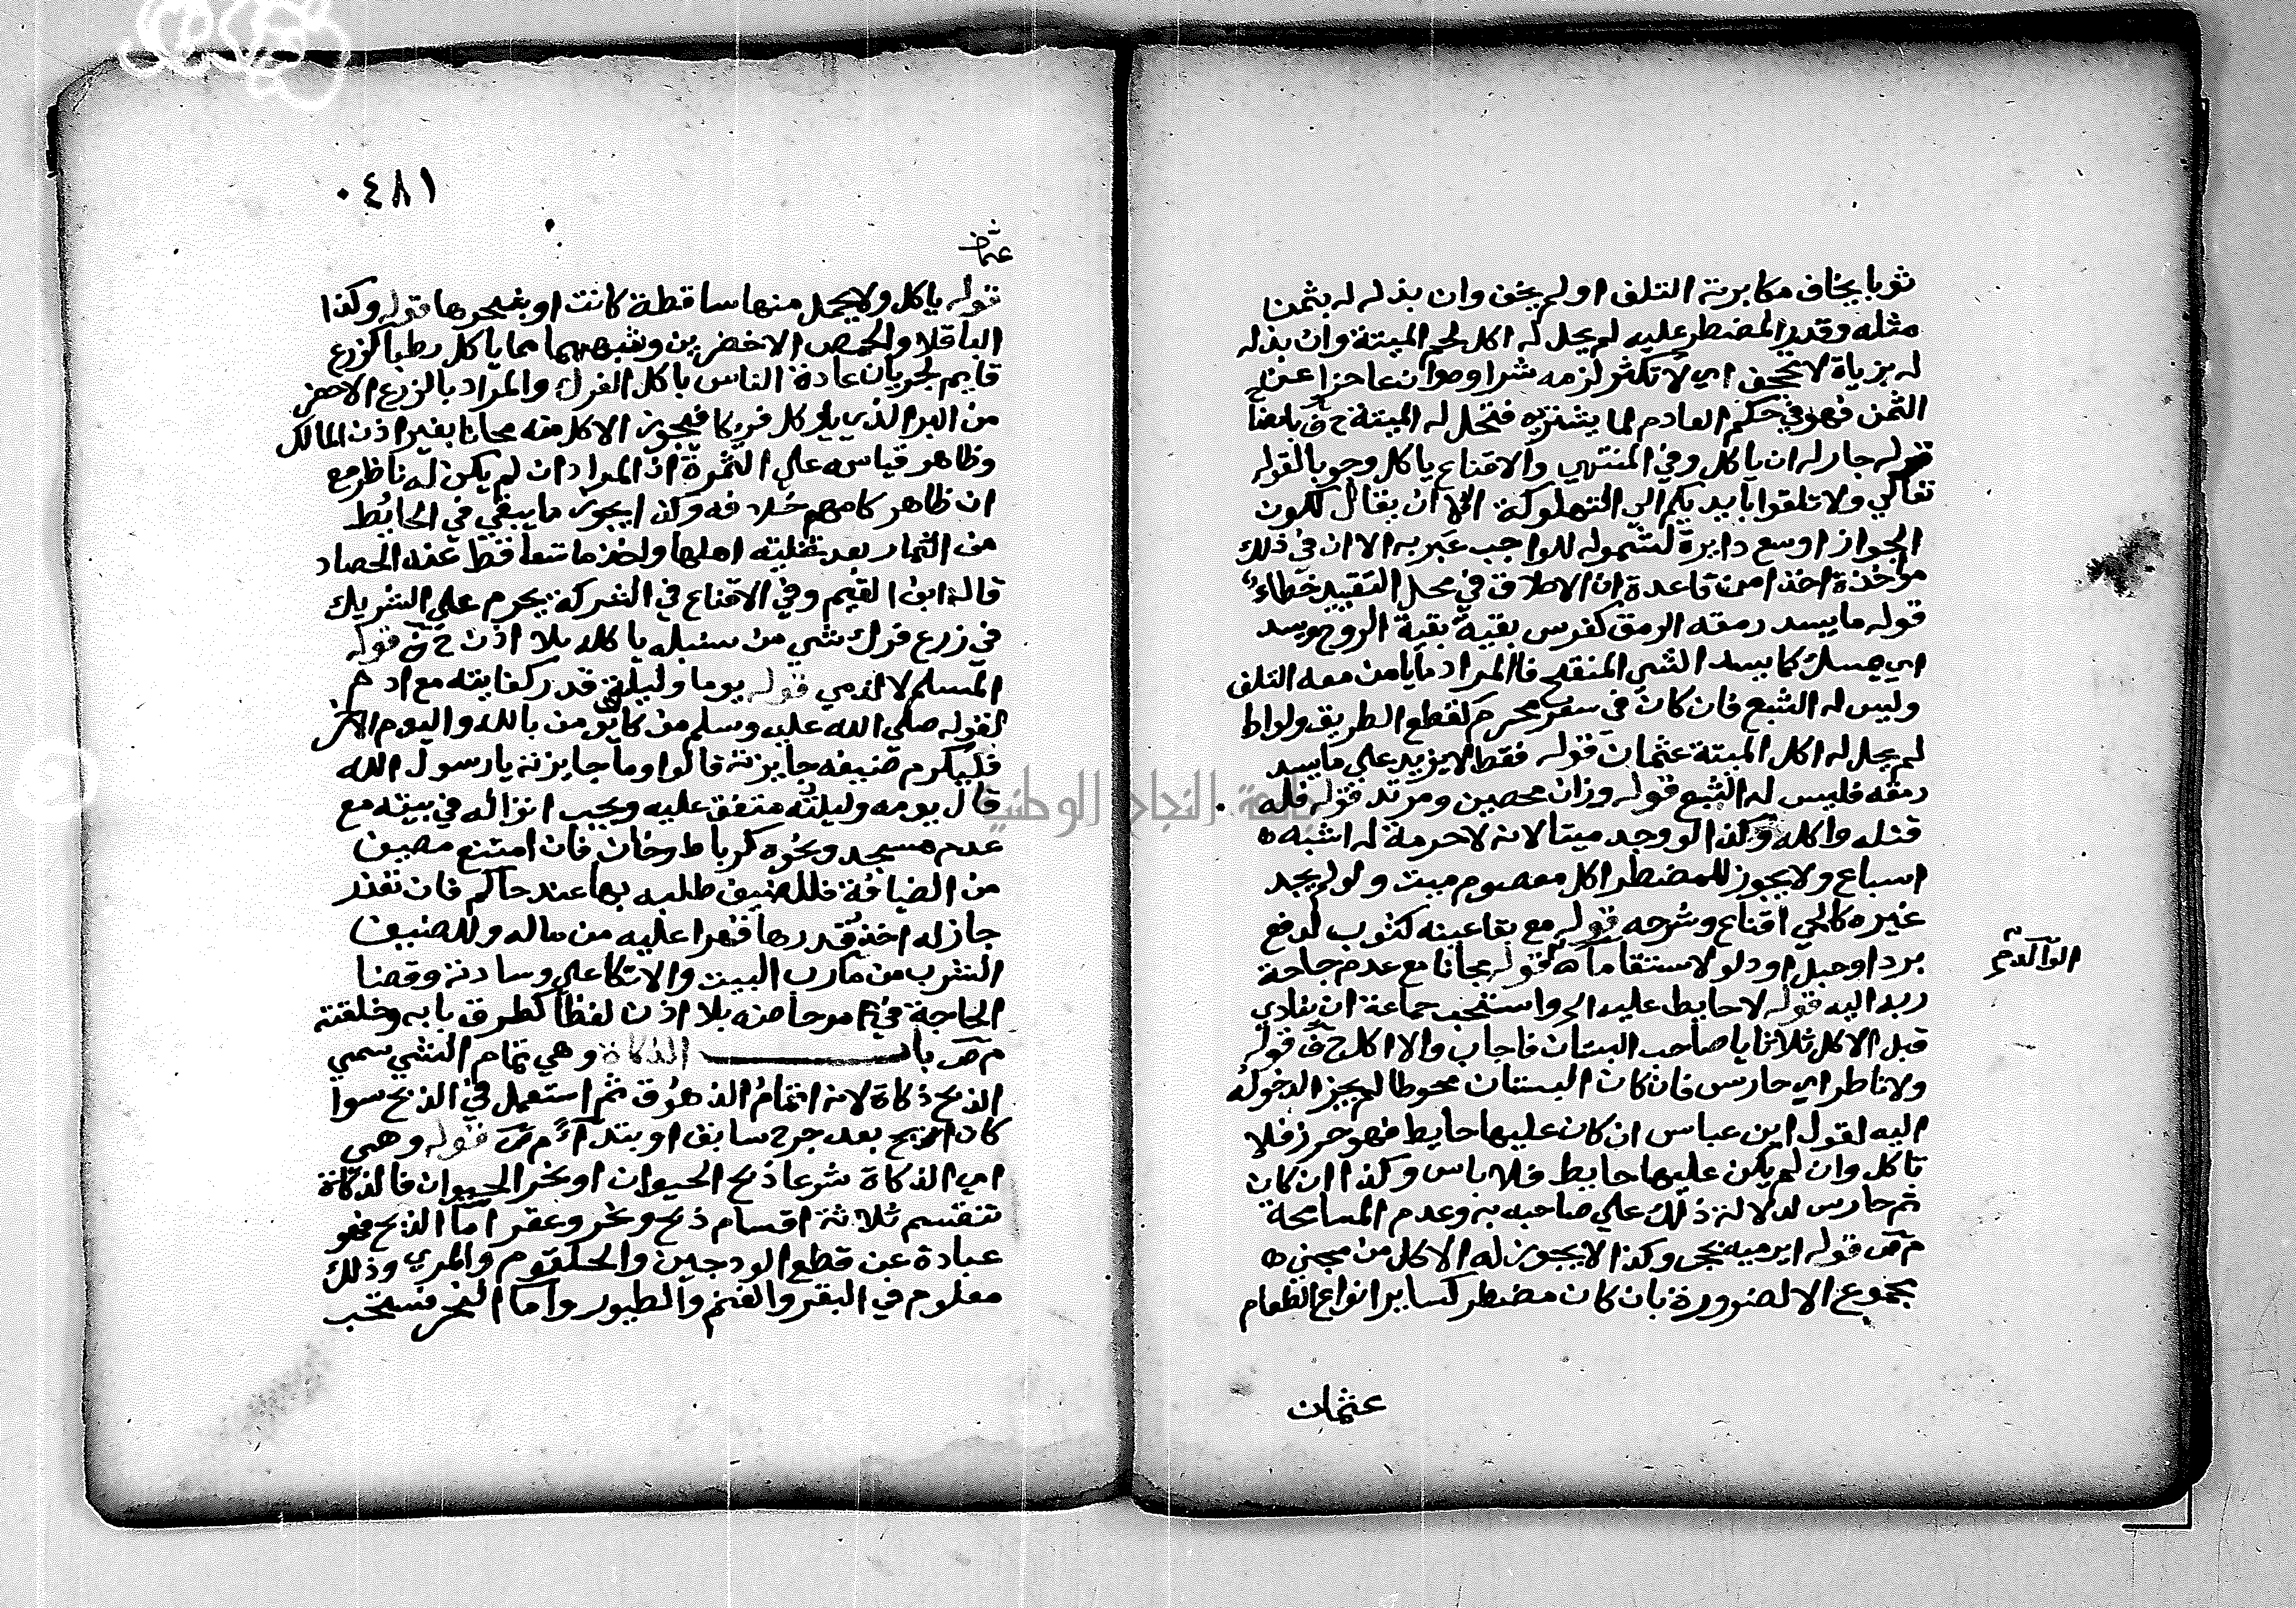 ثوبا يخاف مكابرته التلف او لم يخف وان بذله له بثمن
مثله وقدر المضطر عليه لم يحل له اكل لحم الميتة وان بذله
له بزيادة لا تجحف اي لا تكثر لزمه شراوه وان عاجزا عن
الثمن فهو في حكم العادم لما يشتريه فتحل له الميتة
قوله جاز له ان ياكل وفي المنتهي والاقناع ياكل وجوبا لقوله
تعالي ولا تلقوا بايديكم الي التهلوكة الا ان يقال لكون
الجواز اوسع دايرة لشموله للواجب عبر به الا ان في ذلك
مواخذة اخذا من قاعدة ان الاطلاق في محل التقييد خطاء
قوله ما يسد رمقه الرمق كفرس بقية بقية الروح ويسد
اي يمسك كما يسد الشي المنفتح فا المراد ما يامن معه التلف
وليس له الشبع فان كان في سفر محرم كقطع الطريق ولواط
لم يحل له اكل الميتة عثمان قوله فقط لا يزيد علي ما يسد
رمقه فليس له الشبع قوله وزان محصن ومرتد قوله فله
قتله واكله وكذا لو وجد ميتا لانه لا حرمة له اشبه ه
اسباع ولا يجوز للمضطر اكل معصوم ميت ولو لم يجد
غيره كالحي اقناع وشرحه قوله مع بقا عينه كثوب لدفع
برد او حبل او دلو لاستقا ماه قوله مجانا مع عدم حاجة
ربه اليه قوله لا حايط عليه الخ واستحب جماعة ان ينادي
قبل الاكل ثلاثا يا صاحب البستان فاجاب والا اكل قوله
ولا ناطر اي حارس فان كان البستان محوطا لم يجز الدخوله
اليه لقول ابن عباس ان كان عليها حايط فهو حرز فلا
تاكل وان لم يكن عليها حايط فلا باس وكذا ان كان
ثم حارس لدلالة ذلك علي صاحبه به وعدم المسامحة
م ص قوله او رميه بحجر وكذا لا يجوز له الاكل من مجني ه
مجموع الا لضرورة بان كان مضطر كساير انواع الطعام
عثمان
٠٤٨١
عثمان
قوله ياكل ولا يحمل منها ساقطة كانت او بشجرها قوله وكذا
الباقلا والحمص الاخضرين وشبههما مما ياكل رطبا كزرع
قايم لجريان عادة الناس باكل الفرك والمراد بالزرع الاخضر
من البر الذي يؤكل فريكا فيجوز الاكل منه مجانا بغير اذن المالك
وظاهر قياسه علي الثمرة ان المراد ان لم يكن له ناظر مع
ان ظاهر كلامهم خلافه وكذا يجوز ما يبقي في الحايط
من الثمار بعد تخليته اهلها ولخذ ما تساقط عند الحصاد
قاله ابن القيم وفي الاقناع في الشركة يحرم علي الشريك
في زرع فرك شي من سنبله ياكله بلا اذن قوله
المسلم لا الذمي قوله يوما وليلة قدر كفايته مع ادم
لقوله صلي الله عليه وسلم من كان يؤمن بالله واليوم الاخر
فليكرم ضيفه جايزته قالوا وما جايزته يا رسول الله
قال يومه وليلته متفق عليه ويجب انزاله في بيته مع
عدم مسجد ونحوه كرباط وخان فان امتنع مضيف
من الضيافة فللضيف طلبه بها عند حاكم فان تعذر
جاز له اخذ قدرها قهرا عليه من ماله وللضيف
الشرب من مارب البيت والاتكا علي وسادته وقضا
الحاجة في مرحاضه بلا اذن لفظا كطرق بابه وحلقته
م ص باب الذكاة وهي تمام الشي سمي
الذبح ذكاة لانه اتمام الزهوق ثم استعمل في الذبح سوا
كان الذبح بعد جرح سابق او ابتداء م ص قوله وهي
اي الذكاة شرعا ذبح الحيوان او نحر الحيوان فالذكاة
تنقسم ثلاثة اقسام ذبح ونحر وعقر اما الذبح فهو
عبادة عن قطع الودجين والحلقوم والمري وذلك
معلوم في البقر والغنم والطيور واما النحر فمستحب
جامعة النجاح الوطنية